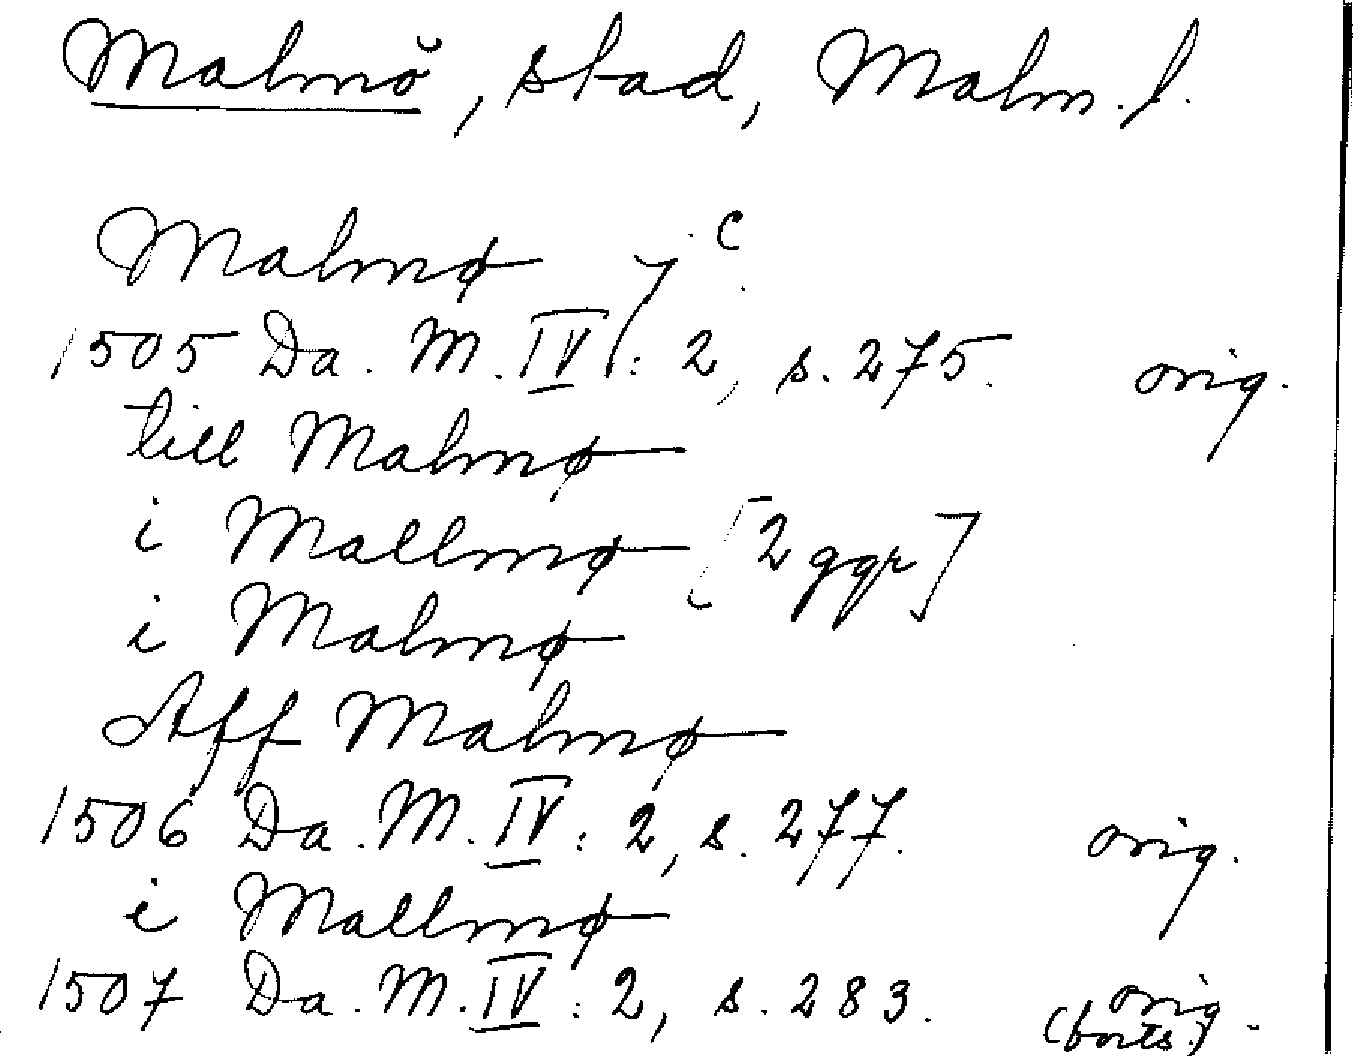 Malmö, stad, Malm. l.
Malmø 7 c.
1505 Da. M. IV: 2, s. 275. orig.
till Malmø
i Mallmø [2 ggr]
i Malmø
Aff Malmø
1506 Da. M. IV: 2, s. 277. orig.
i Mallmø
1507 Da. M. IV: 2, s. 283. orig.
(forts.)